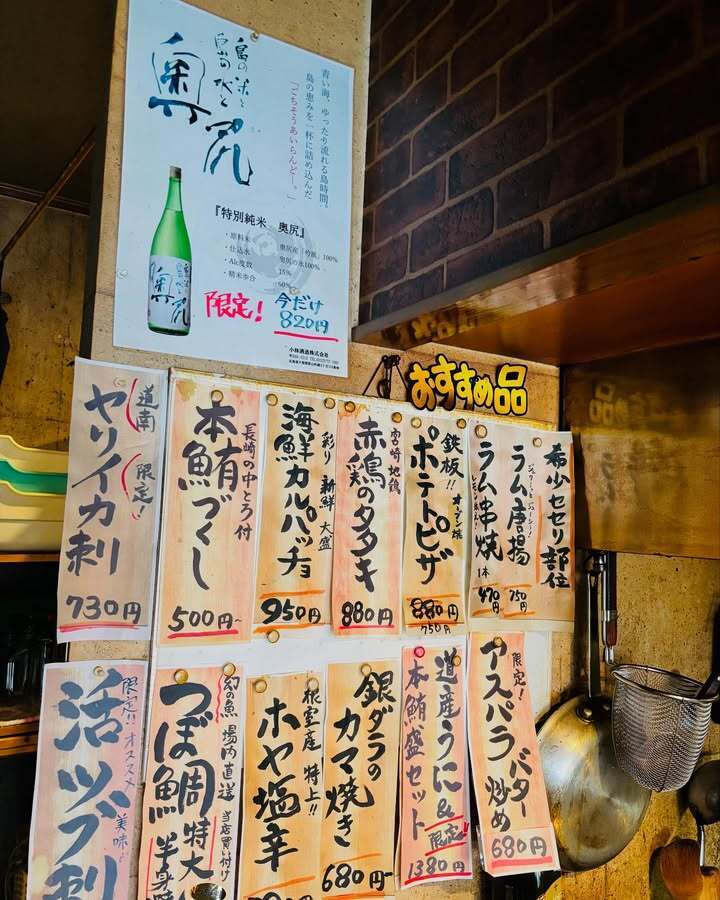 青い海、ゆったり流れる島時間。
島の恵みを一杯に詰め込んだ
「ごちそうあいらんどー。」
島の米と
島の水と
奥尻
『特別純米 奥尻』
・原料米 奥尻産「吟風」100%
・仕込水 奥尻の水100%
・Alc度数 15%
・精米歩合 60%
限定!
今だけ
820円
小林酒造株式会社
おすすめ品
希少セセリ部位
ラム唐揚
750
ラム串焼
1本
470円
鉄板!!
オーブン焼
ポテトピザ
880円
750円
宮崎地鶏
赤鶏のタタキ
880円
彩り 新鮮 大盛
海鮮カルパッチョ
950円
長崎の中とろ付
本鮪づくし
500円~
道南
限定!
ヤリイカ刺
730円
限定!
アスパラバター炒め
680円
道産うに&
本鮪盛セット
限定!!
1380円
銀ダラの
カマ焼き
680円~
根室産 特上!!
ホヤ塩辛
幻の魚 場内直送 当店買い付け
つぼ鯛 特大 半身
限定!! オススメ 美味
活ツブ刺